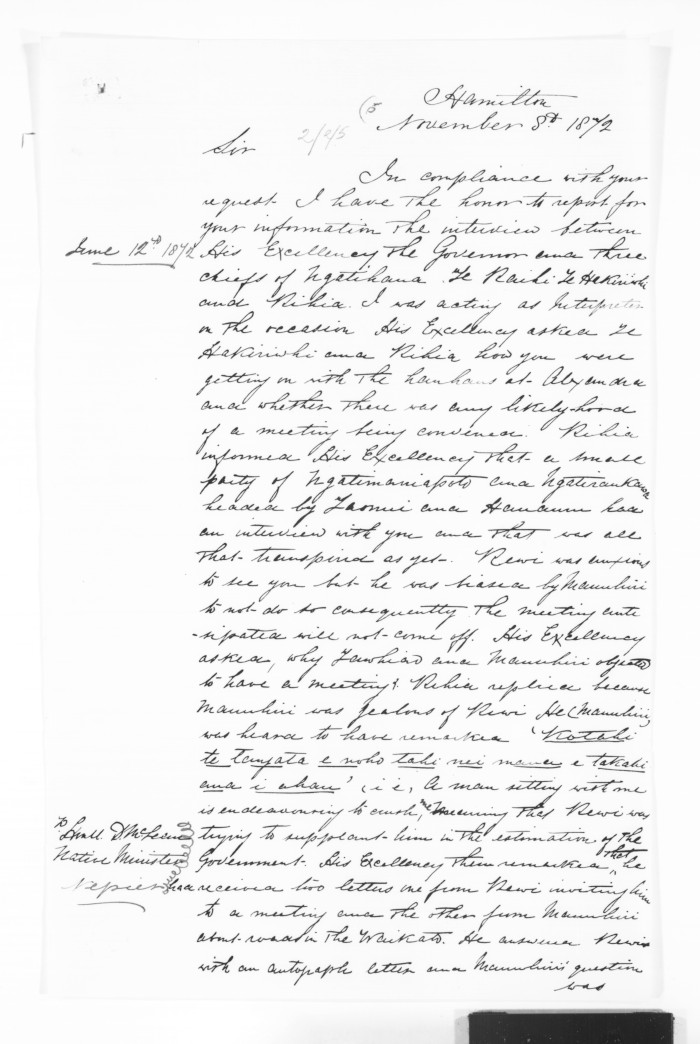 Hamilton
(5 November 8th 1872
2/2/5
Sir
In compliance with your
request I have the honor to report for
your information the interview between
June 12th 1872
His Excellency the Governor and three
chiefs of Ngatihaua Te Raihi Te Hakiriwhi
and Rihia. I was acting as Interpreter
on the occasion His Excellency asked Te
Hakiriwhi and Rihia how you were
getting on with the hauhaus at Alexandra
and whether there was any likely-hood
of a meeting being convened. Rihia
informed His Excellency that a small
party of Ngatimaniapoto and Ngatiraukawa
headed by and Hauauru had
an interview with you and that was all
that transpired as yet. Rewi was anxious
to see you but he was biased by Manuhiri
to not do so consequently the meeting ante
-sipated will not come off. His Excellency
asked, why Tawhiao and Manuhiri objected
to have a meeting? Rihia replied because
Manuhiri was jealous of Rewi He (Manuhiri)
was heard to have remarked 'Kotahi
te tangata e noho tahi nei maua e takahi
ana i ahau', i.e, A man sitting with me
is endeavouring to crush me meaning that Rewi was
trying to supplant him in the estimation of the
Government. His Excellency then remarked that he
To Honll. D McLean
Native Minister
Napier
had received two letters one from Rewi inviting him
to a meeting and the other from Manuhiri
about roads in the Waikato. He answered Rewis
with an autograph letter and Manuhiris' question
was